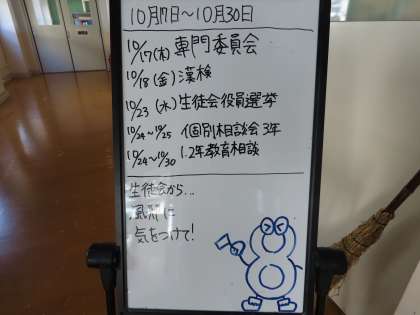 10月17日～10月30日
10/17(木) 専門委員会
10/18(金) 漢検
10/23(水) 生徒会役員選挙
10/24～10/25 個別相談会 3年
10/24～10/30 1.2年教育相談
生徒会から...
風邪に
気をつけて!